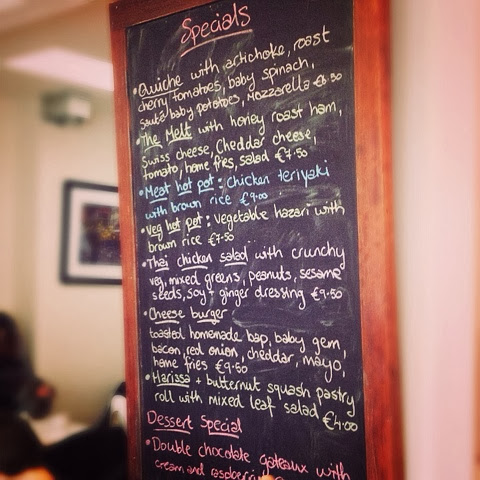 Specials
• Quiche with artichoke, roast
cherry tomatoes, baby spinach,
sauté baby potatoes, Mozzarella €8.50
• The Melt with honey roast ham,
Swiss cheese, Cheddar cheese,
tomato, home fries, salad €7.50
• Meat hot pot: Chicken teriyaki
with brown rice €9.00
• Veg hot pot: Vegetable hazari with
brown rice €7.50
• Thai chicken salad with crunchy
veg, mixed greens, peanuts, sesame
seeds, soy + ginger dressing €9.50
• Cheese burger
toasted homemade bap, baby gem,
bacon, red onion, cheddar, mayo,
home fries €9.50
• Harissa + butternut squash pastry
roll with mixed leaf salad €4.00
Dessert Special
• Double chocolate gateaux with
cream and raspberry